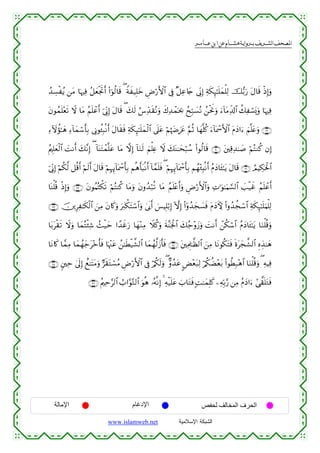 المصحف الشريف برواية هشام عن ابن عامر
وَإِذْ قَالَ رَبُّكَ لِلْمَلَٰٓئِكَةِ إِنِّى جَاعِلٌ فِى ٱلْأَرْضِ خَلِيفَةً ۖ قَالُوٓا۟ أَتَجْعَلُ فِيهَا مَن يُفْسِدُ
فِيهَا وَيَسْفِكُ ٱلدِّمَآءَ وَنَحْنُ نُسَبِّحُ بِحَمْدِكَ وَنُقَدِّسُ لَكَ ۖ قَالَ إِنِّىٓ أَعْلَمُ مَا لَا تَعْلَمُونَ
وَعَلَّمَ ءَادَمَ ٱلْأَسْمَآءَ كُلَّهَا ثُمَّ عَرَضَهُمْ عَلَى ٱلْمَلَٰٓئِكَةِ فَقَالَ أَنۢبِـُٔونِى بِأَسْمَآءِ هَٰٓؤُلَآءِ
إِن كُنتُمْ صَٰدِقِينَ قَالُوا۟ سُبْحَٰنَكَ لَا عِلْمَ لَنَآ إِلَّا مَا عَلَّمْتَنَآ ۖ إِنَّكَ أَنتَ ٱلْعَلِيمُ
ٱلْحَكِيمُ قَالَ يَٰٓـَٔادَمُ أَنۢبِئْهُم بِأَسْمَآئِهِمْ ۖ فَلَمَّآ أَنۢبَأَهُم بِأَسْمَآئِهِمْ قَالَ أَلَمْ أَقُل لَّكُمْ إِنِّىٓ
أَعْلَمُ غَيْبَ ٱلسَّمَٰوَٰتِ وَٱلْأَرْضِ وَأَعْلَمُ مَا تُبْدُونَ وَمَا كُنتُمْ تَكْتُمُونَ وَإِذْ قُلْنَا
لِلْمَلَٰٓئِكَةِ ٱسْجُدُوا۟ لِـَٔادَمَ فَسَجَدُوٓا۟ إِلَّآ إِبْلِيسَ أَبَىٰ وَٱسْتَكْبَرَ وَكَانَ مِنَ ٱلْكَٰفِرِينَ
وَقُلْنَا يَٰٓـَٔادَمُ ٱسْكُنْ أَنتَ وَزَوْجُكَ ٱلْجَنَّةَ وَكُلَا مِنْهَا رَغَدًا حَيْثُ شِئْتُمَا وَلَا تَقْرَبَا
هَٰذِهِ ٱلشَّجَرَةَ فَتَكُونَا مِنَ ٱلظَّٰلِمِينَ فَأَزَلَّهُمَا ٱلشَّيْطَٰنُ عَنْهَا فَأَخْرَجَهُمَا مِمَّا كَانَا
فِيهِ ۖ وَقُلْنَا ٱهْبِطُوا۟ بَعْضُكُمْ لِبَعْضٍ عَدُوٌّ ۖ وَلَكُمْ فِى ٱلْأَرْضِ مُسْتَقَرٌّ وَمَتَٰعٌ إِلَىٰ حِينٍ
فَتَلَقَّىٰٓ ءَادَمُ مِن رَّبِّهِۦ كَلِمَٰتٍ فَتَابَ عَلَيْهِ ۚ إِنَّهُۥ هُوَ ٱلتَّوَّابُ ٱلرَّحِيمُ
الحرف المخالف لحفص الإدغام الإمالة
الشبكة الإسلامية www.islamweb.net